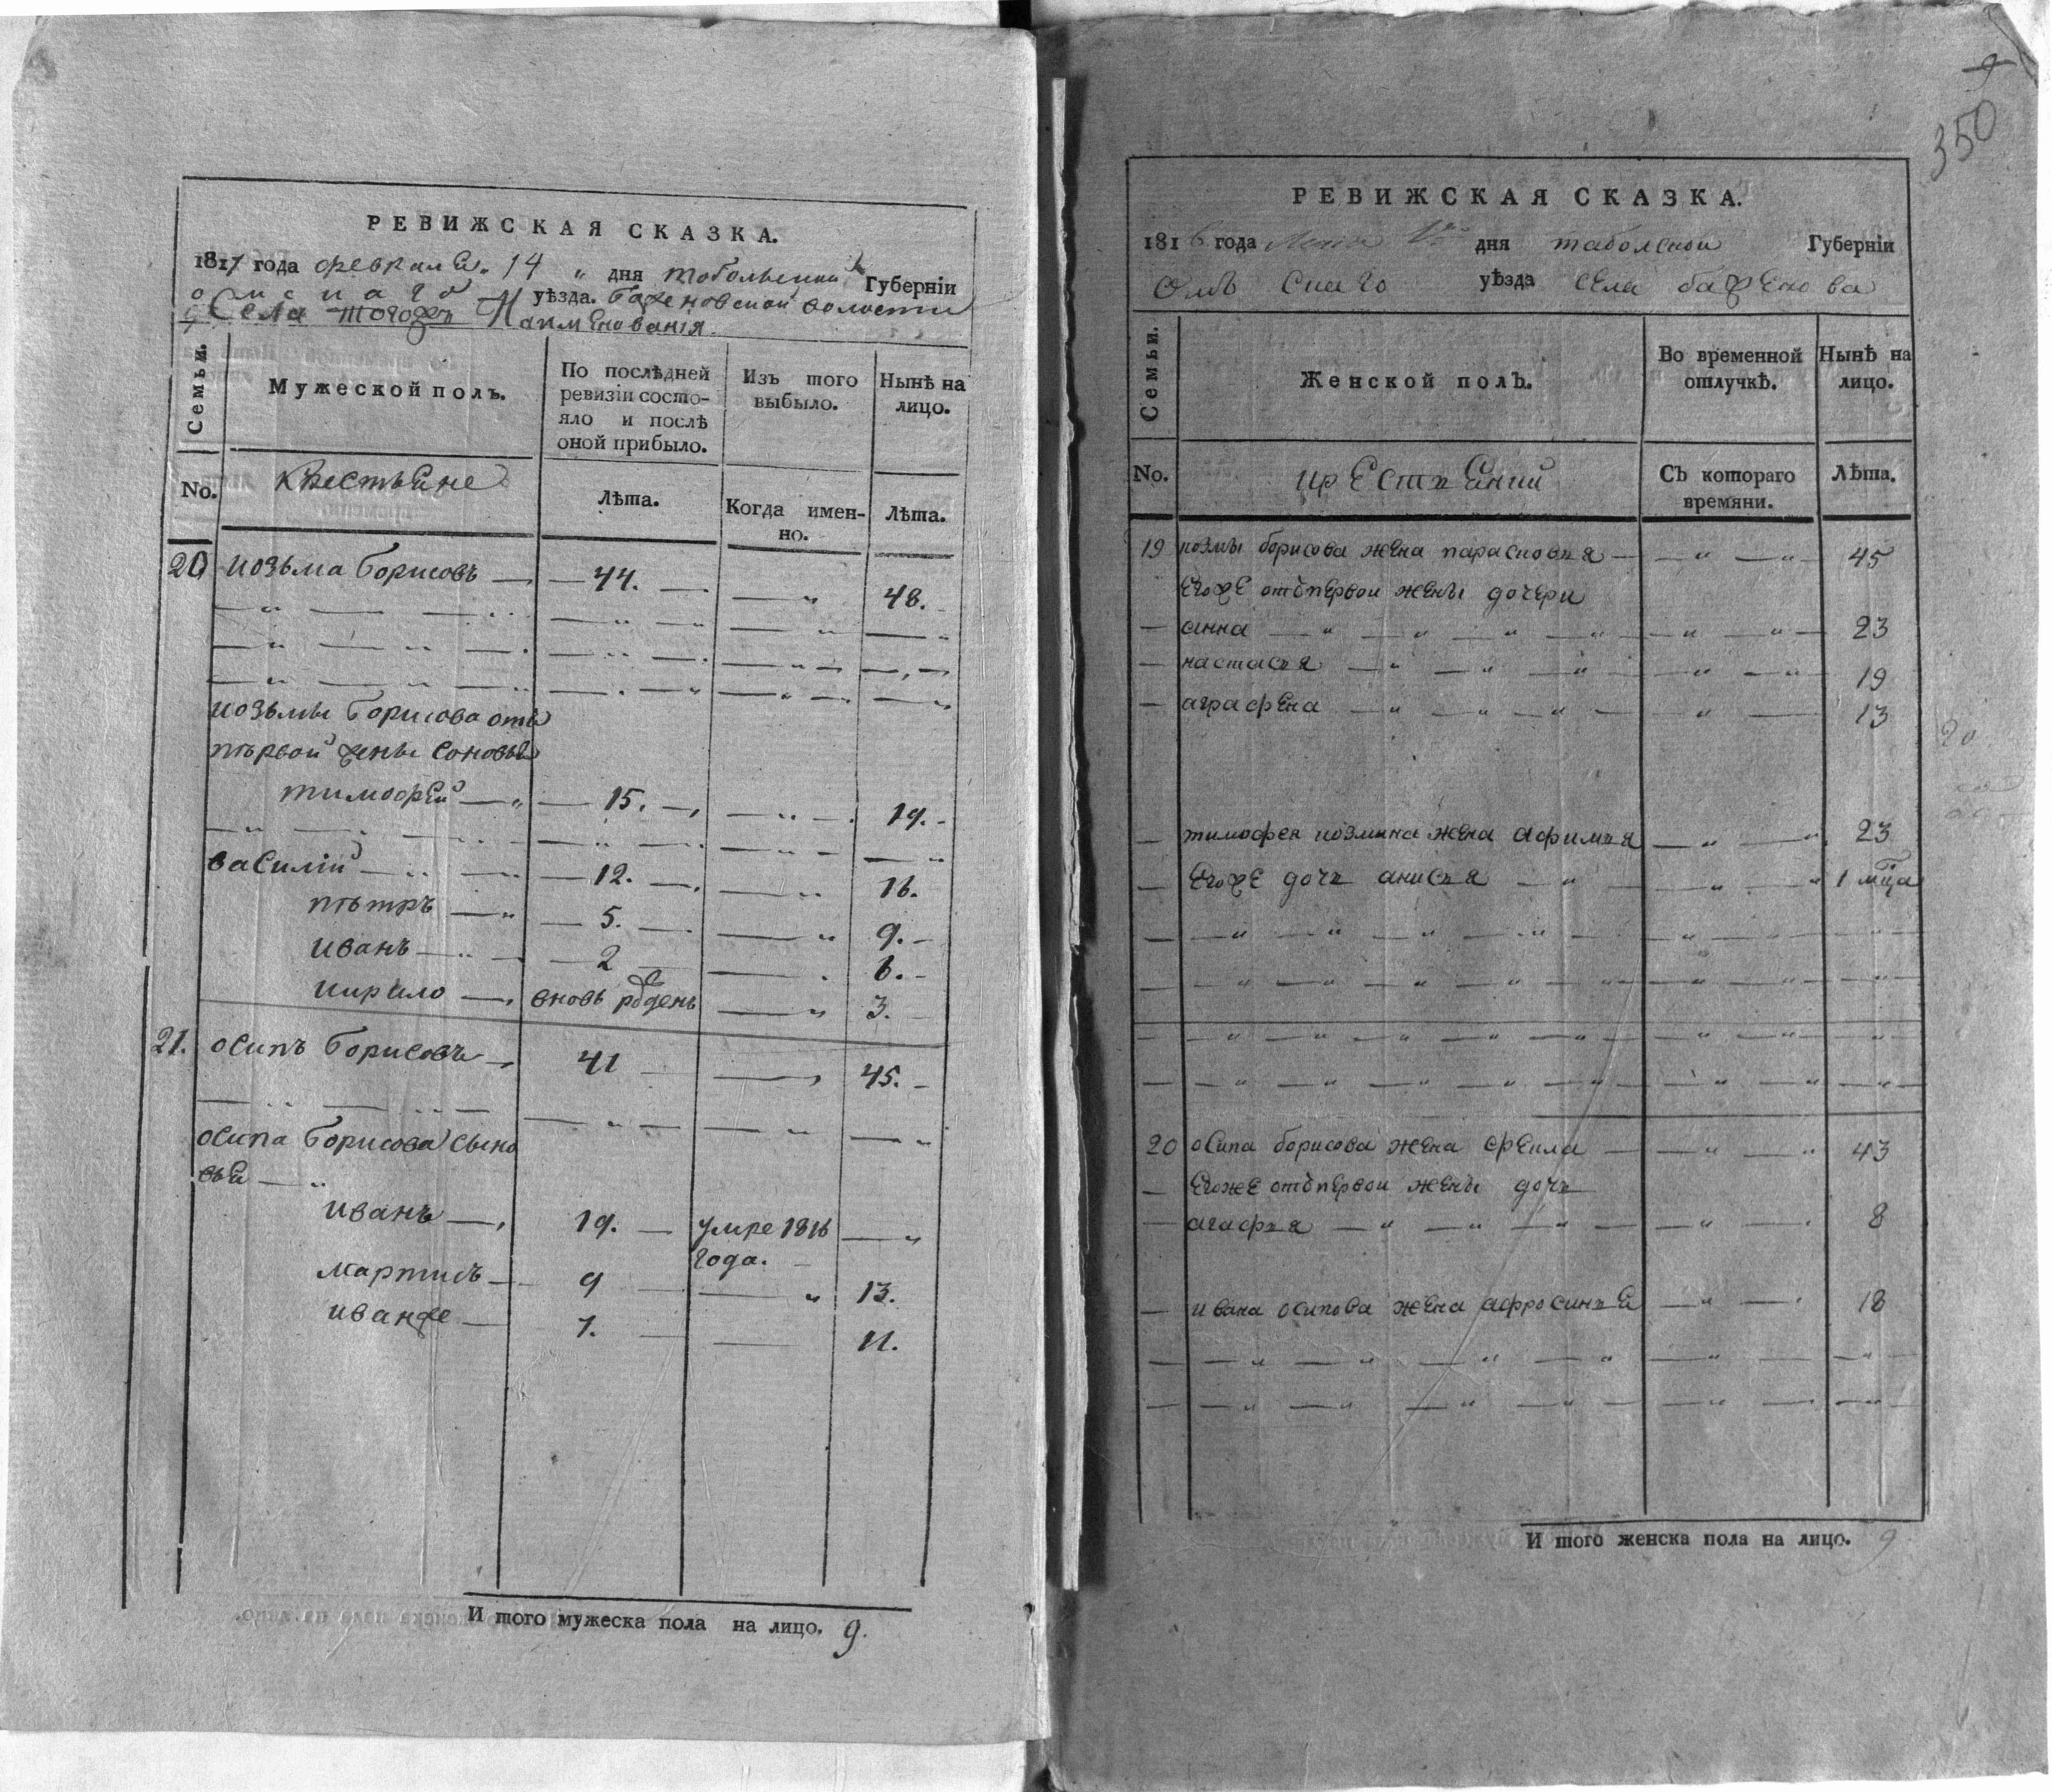 РЕВИЖСКАЯ СКАЗКА.
1817 года февраля 14 дня тобольской Губернїи
омскаго уѣзда. баженовской волости
Села тогожъ Наименованія.
Семьи.
Мужеской полъ.
По послѣдней ревизїи состо-
яло и послѣ
оной прибыло.
Изъ того выбыло.
Нынѣ на лицо.
No.
крестьяне
Лѣта.
Когда имен-
но.
Лѣта.
20 козьма борисовъ 44. 48.
козьмы борисова отъ
первой жены соновья
тимофей 15. 19.
василій 12. 16.
петръ 5. 9.
иванъ 2 6.
кирило вновь рожденъ 3.
21. осипъ борисовъ 41 45.
осипа борисова сыно
вья
иванъ 19. умре 1816
года.
мартинъ 9 13.
иванже 7. 11.
И того мужеска пола на лицо. 9.
350
РЕВИЖСКАЯ СКАЗКА.
1816 года дня таболской Губернїи
Омъ скаго уѣзда села баженова
Семьи.
Женской полъ.
Во временной отлучкѣ.
Нынѣ на лицо.
No.
крестьяний
Съ котораго времяни.
Лѣта.
19 козмы борисова жена парасковья 45
егоже отъ первои жены дочери
анна 23
настасья 19
аграфена 13
тимофея козмина жена афимья 23
егоже дочь анисья 1 мца
20 осипа борисова жена фекла 43
егоже отъ первои жены дочь
агафья 8
ивана осипова жена афросинья 18
И того женска пола на лицо. 9